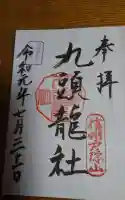 奉拝
九頭龍社
令和元年七月三十一日